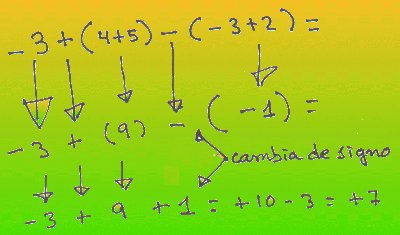 -3+(4+5)-(-3+2)=
-3 + (9) - (-1)=
cambia de signo
-3 + 9 +1 = +10-3 = +7